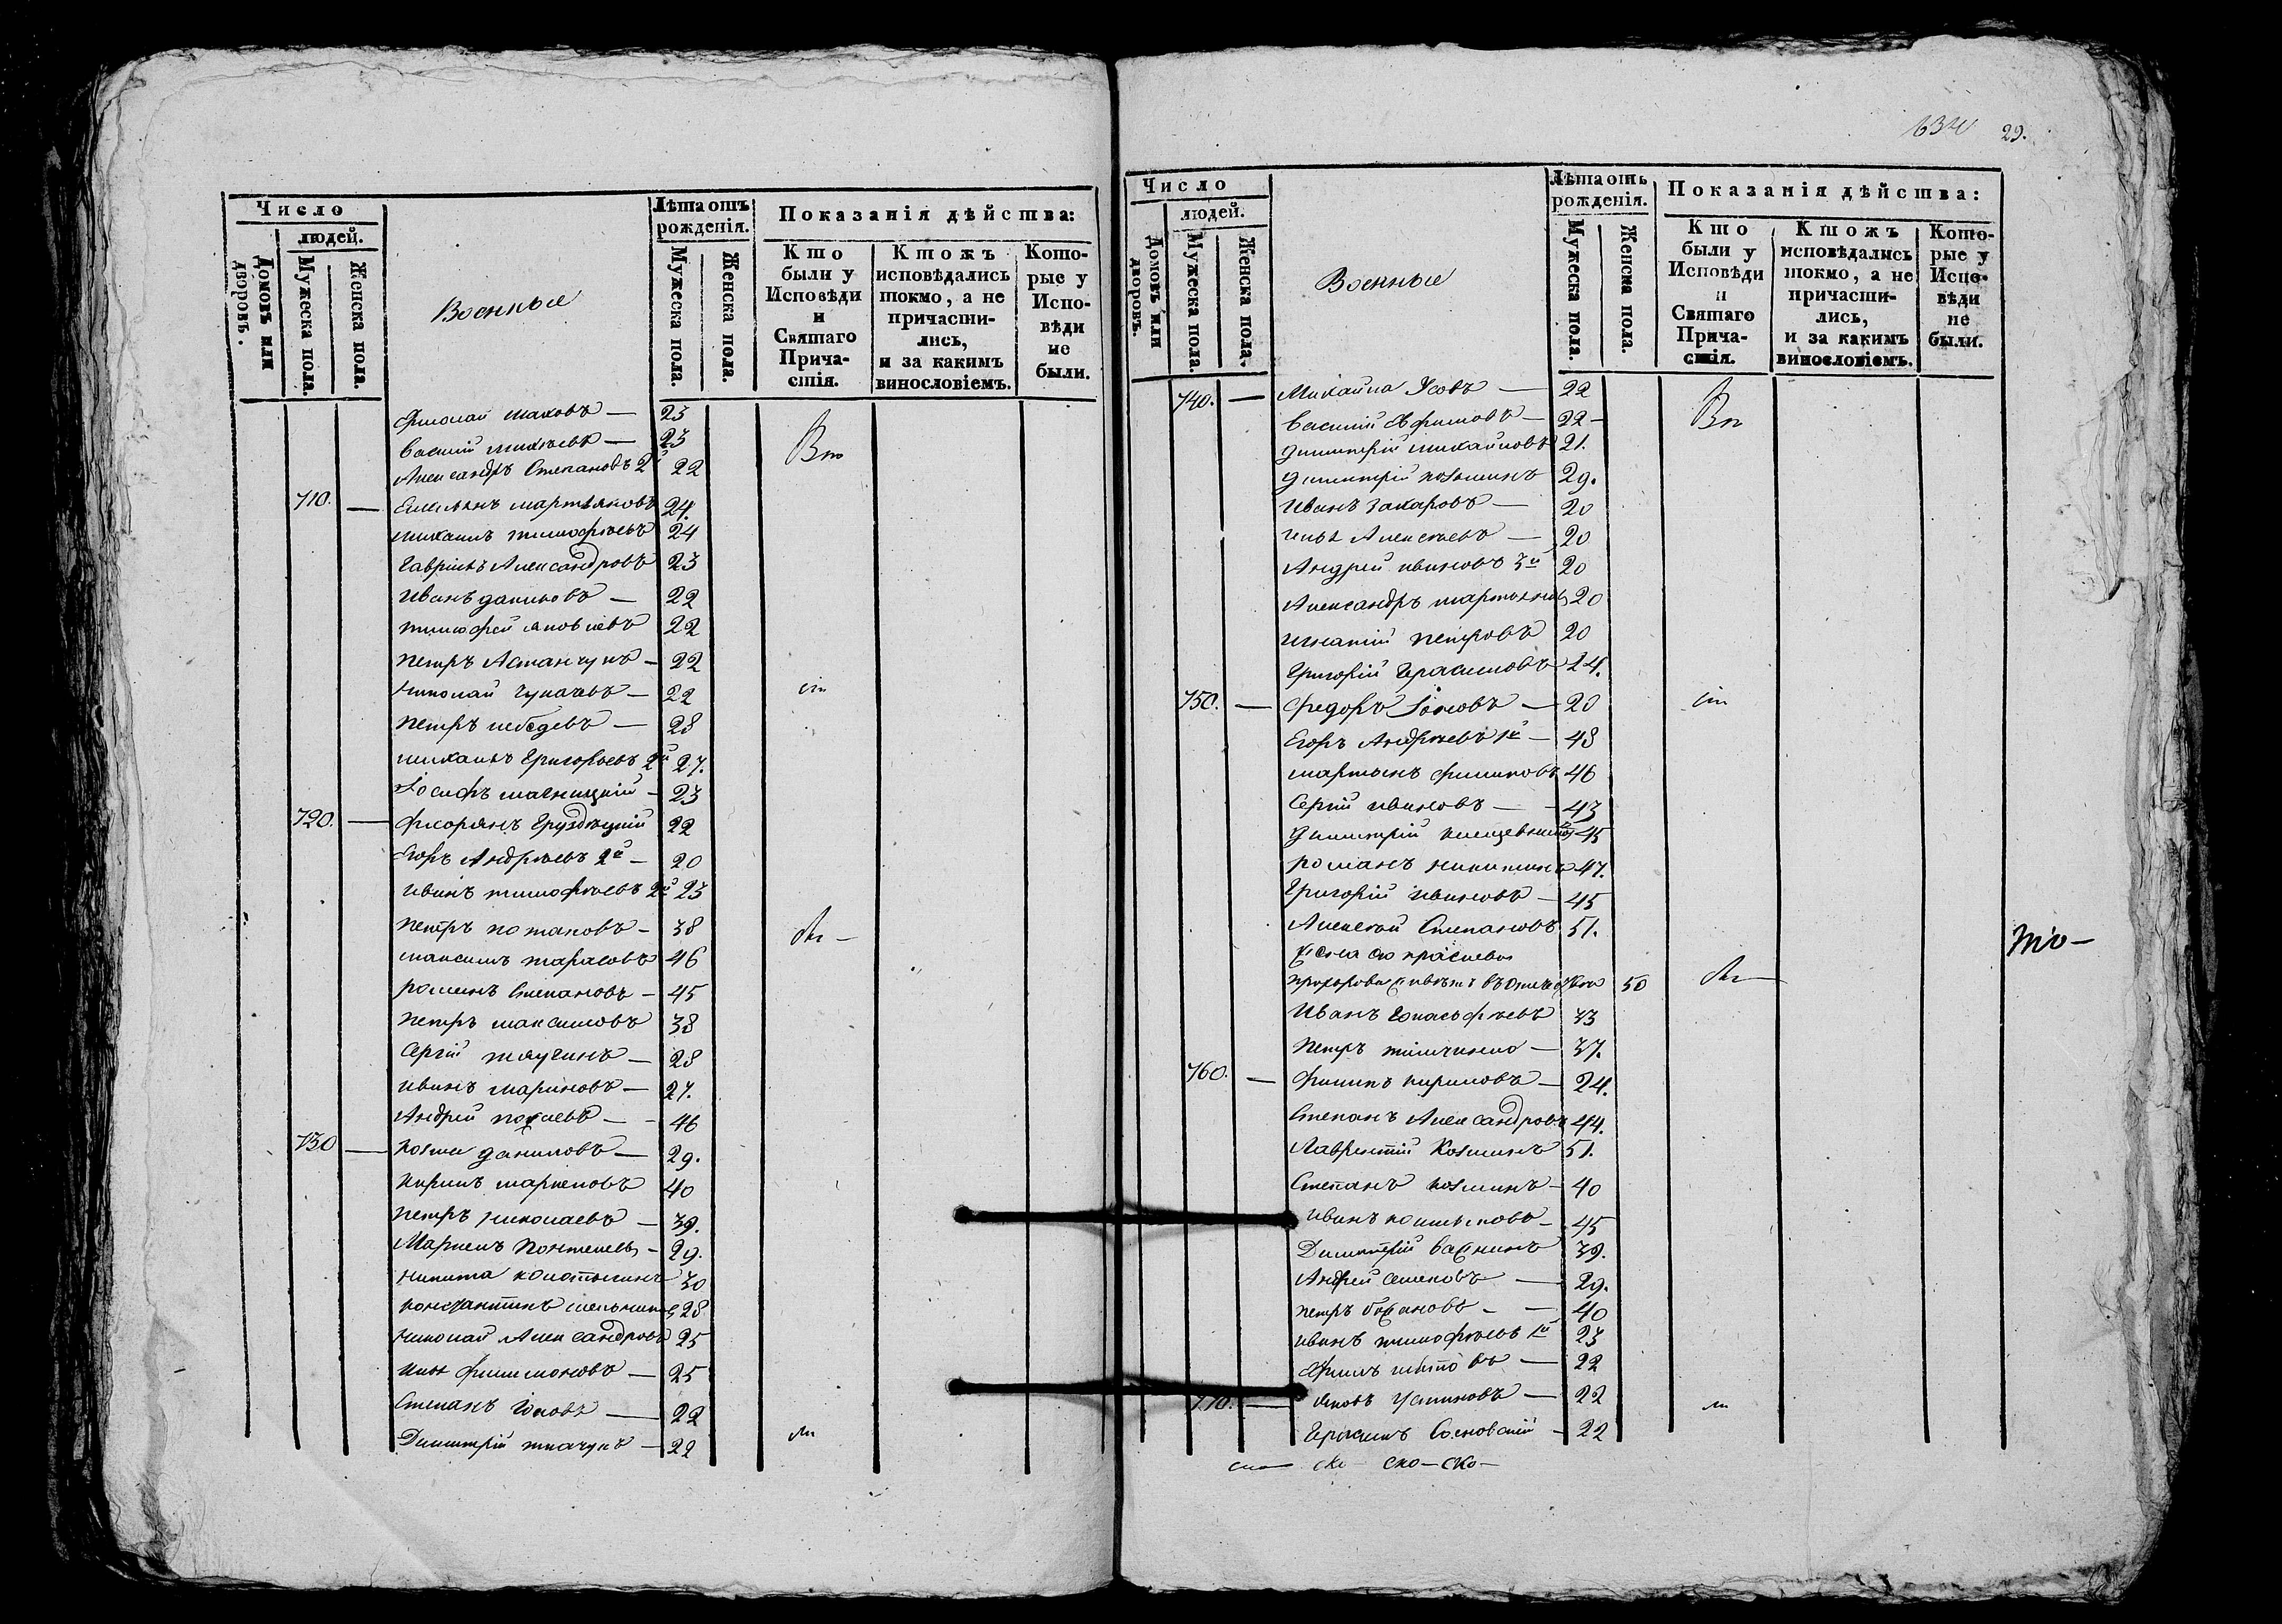 Число
людей.
Домовъ или дворовъ.
Мужеска пола.
Женска пола.
Военные
Лѣта отъ рожденія.
Мужеска пола.
Женска пола.
Показанія дѣйства:
Кто были у Исповѣди и Святаго Причастія.
Ктожъ исповѣдались токмо, а не причастились, и за какимъ винословіемъ.
Которые у Исповѣди не были.
Николай Маковъ — 23
Василій Михѣевъ — 23
Александръ Степановъ 2й 22
710. — Емельянъ Мартьяновъ 24.
Михаилъ Тимофѣевъ 24
Гаврiилъ Александровъ 23
Иванъ Даниловъ — 22
Тимофей Яковлевъ 22
Петръ Астанчукъ — 22
Николай Чукачевъ — 22
Петръ Лебедевъ — 28
Михаилъ Григорьевъ 2й 27.
Іосифъ — 23
720. — Флорянъ Груздѣцкій 22
Егоръ Андрѣевъ 2й — 20
Иванъ Тимофѣевъ 2й 23
Петръ Потаповъ — 38
Максимъ Тарасовъ 46
Романъ Степановъ — 45
Петръ Максимовъ 38
Сергій — 28
Иванъ Мариновъ — 27.
Андрей — 46
730 — Козма Даниловъ — 29.
Кирилъ Маркеловъ 40
Петръ Николаевъ — 39.
Маркелъ Пантелевъ — 29.
Никита 30
Константинъ Мельниковъ 28
Николай Александровъ 25
Илья Филимоновъ — 25
Степанъ Іоновъ — 22
Димитрій Ткачукъ — 22
634 29.
Число
людей.
Домовъ или дворовъ.
Мужеска пола.
Женска пола.
Военные
Лѣта отъ рожденія.
Мужеска пола.
Женска пола.
Показанія дѣйства:
Кто были у Исповѣди и Святаго Причастія.
Ктожъ исповѣдались токмо, а не причастились, и за какимъ винословіемъ.
Которые у Исповѣди не были.
740. — Михайла Усовъ — 22
Василій Ефимовъ — 22 —
Димитрій Михайловъ 21.
Димитрій Козминъ 29.
Иванъ Захаровъ — 20
Илья Алексѣевъ — 20
Андрей Ивановъ 3й 20
Александръ Мартыновъ 20
Игнатій Петровъ 20
Григорій Герасимовъ 24.
750. — Федоръ Іоновъ — 20
Егоръ Андрѣевъ 1й — 48
Мартынъ Филиповъ 46
Сергій Ивановъ — 43
Димитрій 45
Романъ Никитинъ 47.
Григорій Ивановъ — 45
Алексѣй Степановъ 51.
50
Иванъ 33
Петръ — 37.
760. — Филипъ Кириловъ — 24.
Степанъ Александровъ 44.
Лаврентій Козминъ 51.
Степанъ Козминъ — 40
Иванъ — 45
Димитрій 39.
Андрей Семеновъ — 29.
Петръ — 40
Иванъ Тимофѣевъ 1й 23
Ефимъ — 22
770. — Яковъ Устиновъ — 22
Герасимъ Сосновскій — 22